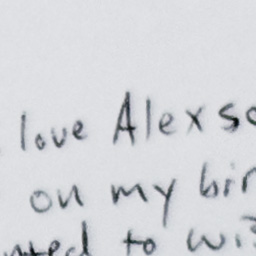 love Alexso
on my bir
nted to wi